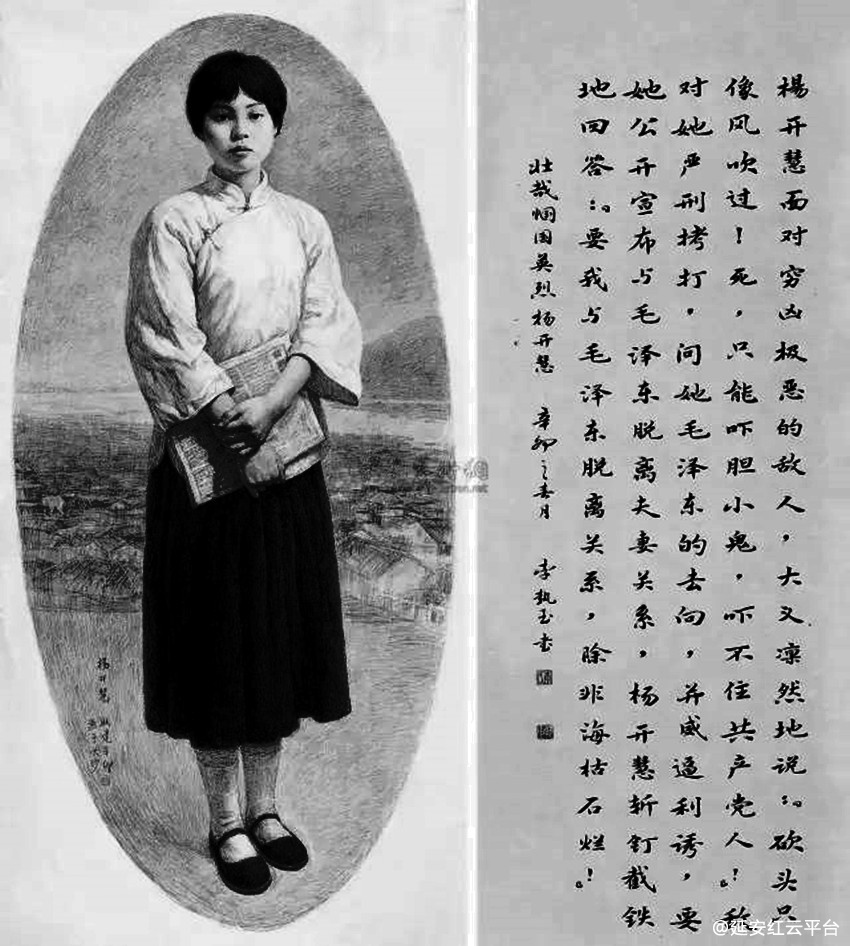 楊开慧面对穷凶极恶的敌人，大义凛然地说：“砍头只
像风吹过！死，只能吓胆小鬼，吓不住共产党人！”
对她严刑拷打，问她毛泽东的去向，并威逼利诱，要
她公开宣布与毛泽东脱离夫妻关系，杨开慧斩钉截铁
地回答：“要我与毛泽东脱离关系，除非海枯石烂！”
壮哉悯国英烈杨开慧 辛卯之春月 李执玉书
杨开慧
@延安红云平台